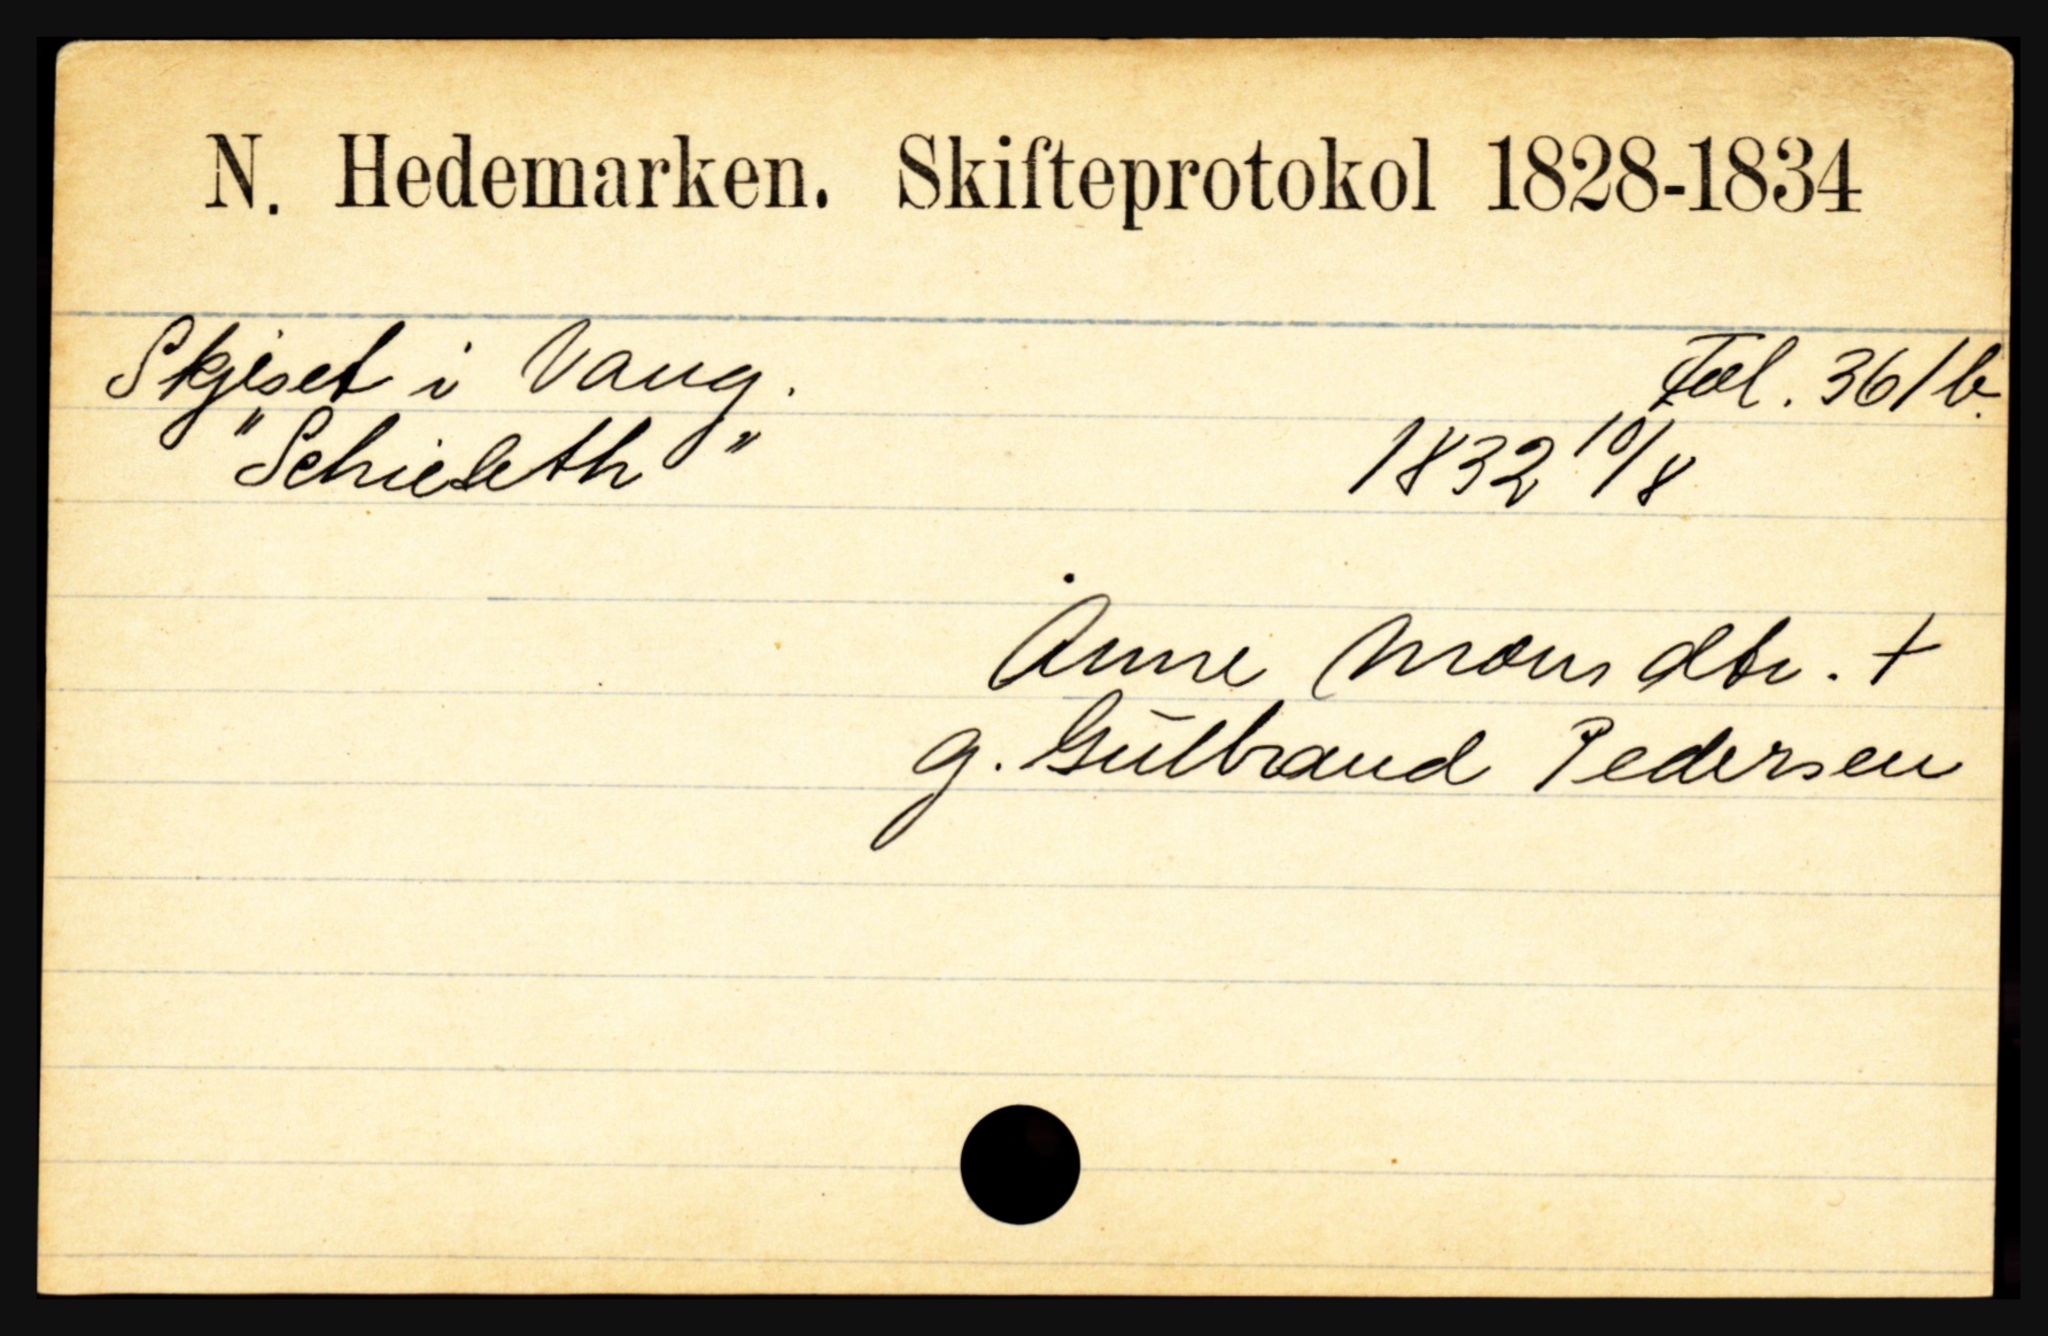 N. Hedemarken. Skifteprotokol 1828-1834
Skjeset i Vang. Fol. 361b.
"Schieseth" 1832 10/8
Anne Monsdtr. +
g. Gulbrand Pedersen